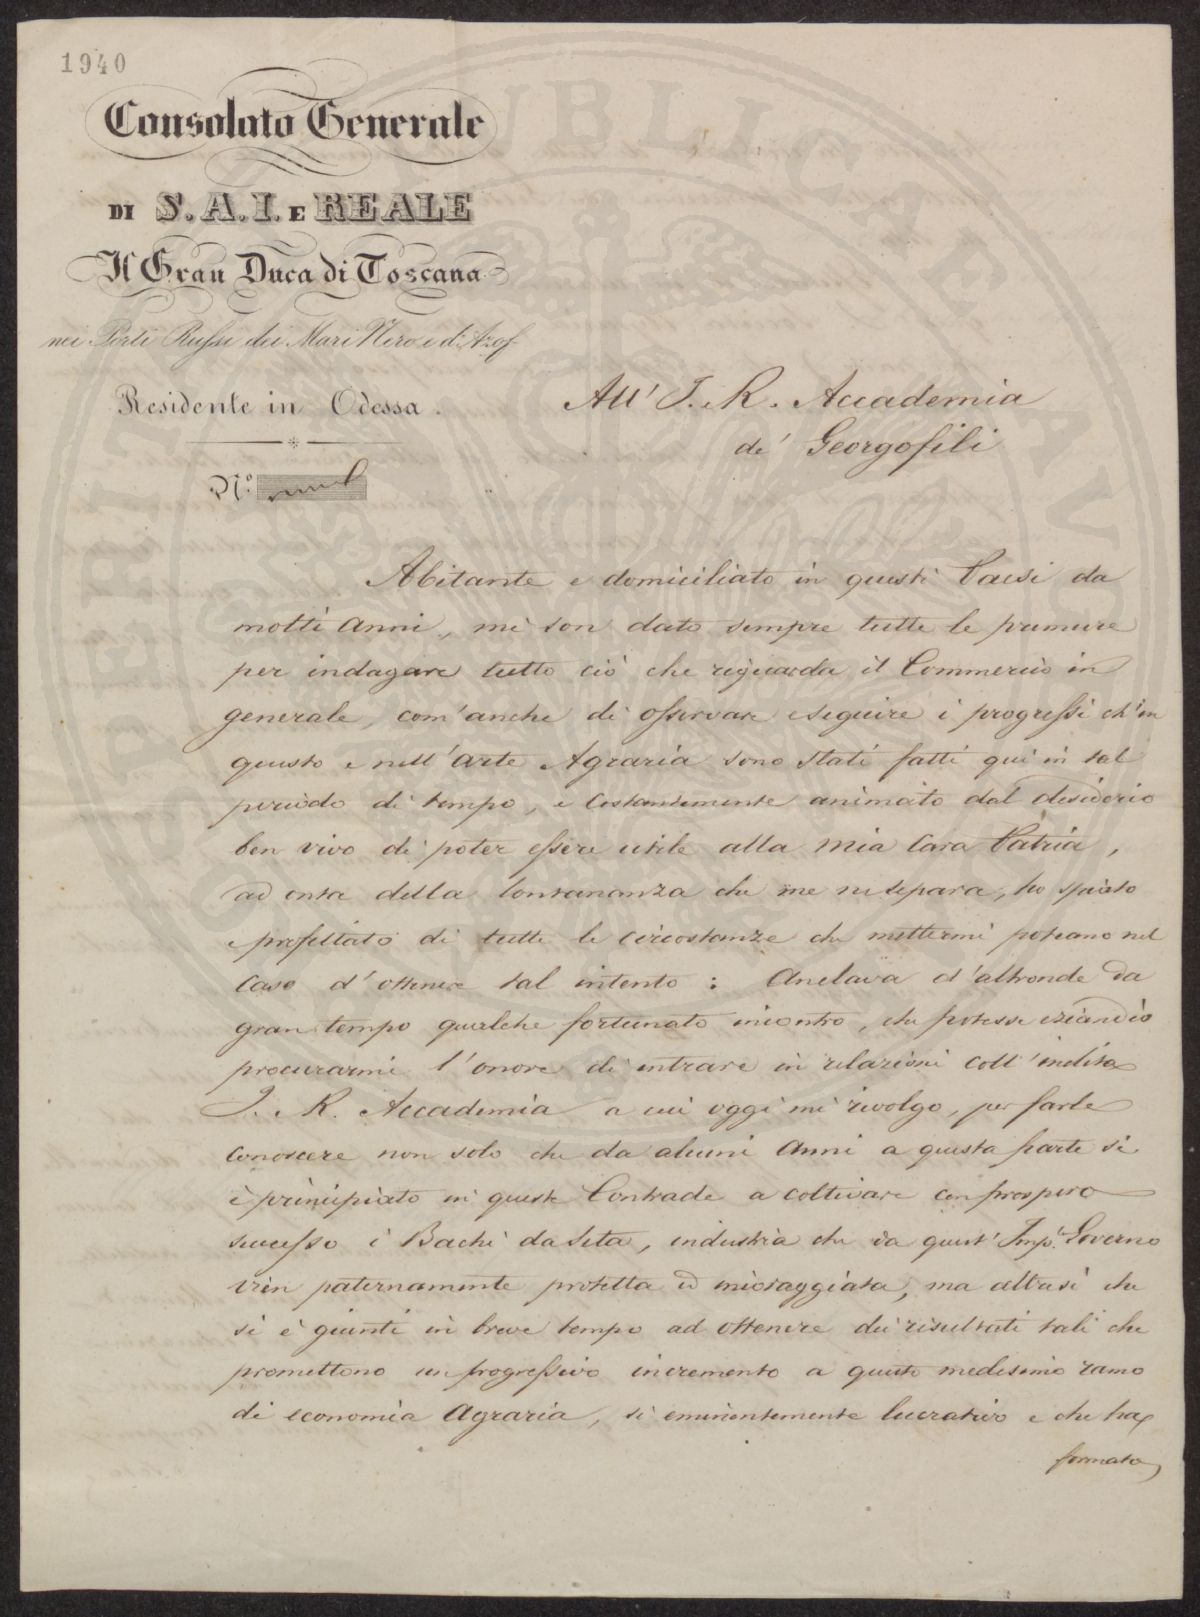 1940
Consolato Generale
DI S. A. I. E REALE
Il Gran Duca di Toscana
nei Porti Russi dei Mari Nero e d'Azof
Residente in Odessa.
N.°
All' I. e R. Accademia
de' Georgofili
Abitante e domiciliato in questi Paesi da
molti anni, mi son dato sempre tutte le premure
per indagare tutto ciò che riguarda il Commercio in
generale, com'anche di osservare e seguire i progressi ch'in
questo e nell'arte Agraria sono stati fatti qui in tal
periodo di tempo, e costantemente animato dal desiderio
ben vivo di poter essere utile alla mia Cara Patria,
ad onta della lontananza che me ne separa, ho spiato
e profittato di tutte le circostanze che mettermi poteano nel
Caso d'ottenere tal intento: Anelava d'altronde da
gran tempo qualche fortunato incontro, che potesse eziandio
procurarmi l'onore di entrare in relazioni coll'inclita
I. e R. Accademia a cui oggi mi rivolgo, per farle
conoscere non solo che da alcuni anni a questa parte si
è principiato in queste Contrade a coltivare con prospero
successo i Bachi da Seta, industria che da quest' Imp.l Governo
vien paternamente protetta ed incoraggiata, ma altresì che
si è giunti in breve tempo ad ottenere dei risultati tali che
promettono un progressivo incremento a questo medesimo ramo
di economia Agraria, sì eminentemente lucrativo e che ha
formato
PUBLICAE